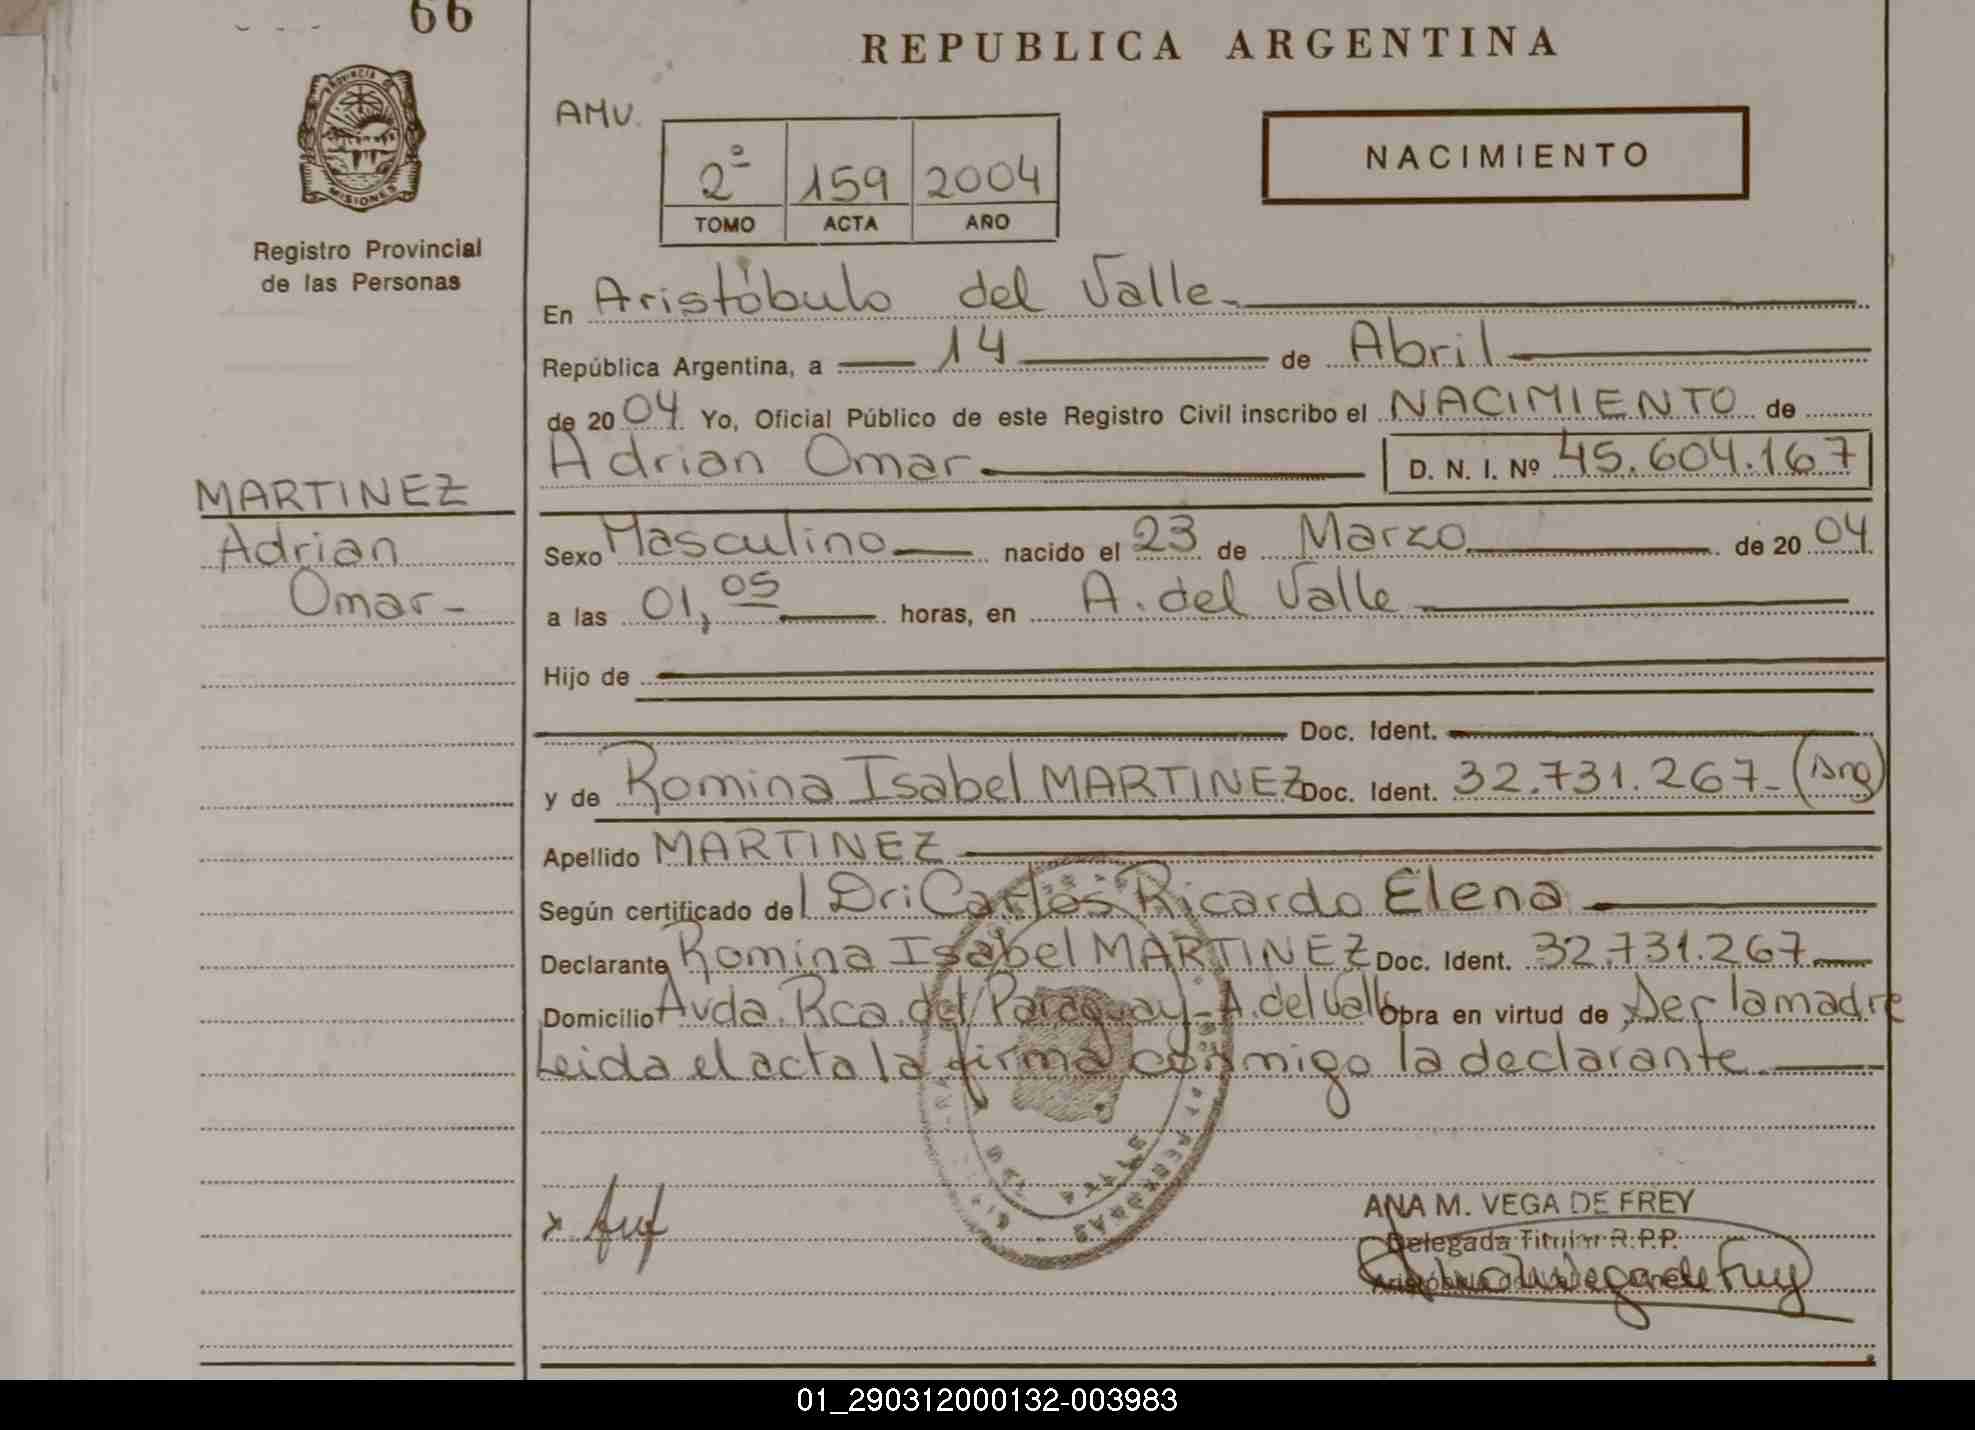 66
REPUBLICA ARGENTINA
PROVINCIA
MISIONES
Registro Provincial
de las Personas
AMV.
2º 159 2004
TOMO ACTA AÑO
NACIMIENTO
En Aristóbulo del Valle
República Argentina, a 14 de Abril
de 2004 Yo, Oficial Público de este Registro Civil inscribo el NACIMIENTO de
Adrian Omar D. N. I. Nº 45.604.167
MARTINEZ
Adrian
Omar
Sexo Masculino nacido el 23 de Marzo de 2004
a las 01,05 horas, en A. del Valle
Hijo de
Doc. Ident.
y de Romina Isabel MARTINEZ Doc. Ident. 32.731.267 (Arg)
Apellido MARTINEZ
Según certificado del Dr: Carlos Ricardo Elena
Declarante Romina Isabel MARTINEZ Doc. Ident. 32.731.267
Domicilio Avda. Rca. del Paraguay - A. del Valle Obra en virtud de Ser la madre
Leida el acta la firma conmigo la declarante
ANA M. VEGA DE FREY
Delegada Titular R.P.P.
01_290312000132-003983